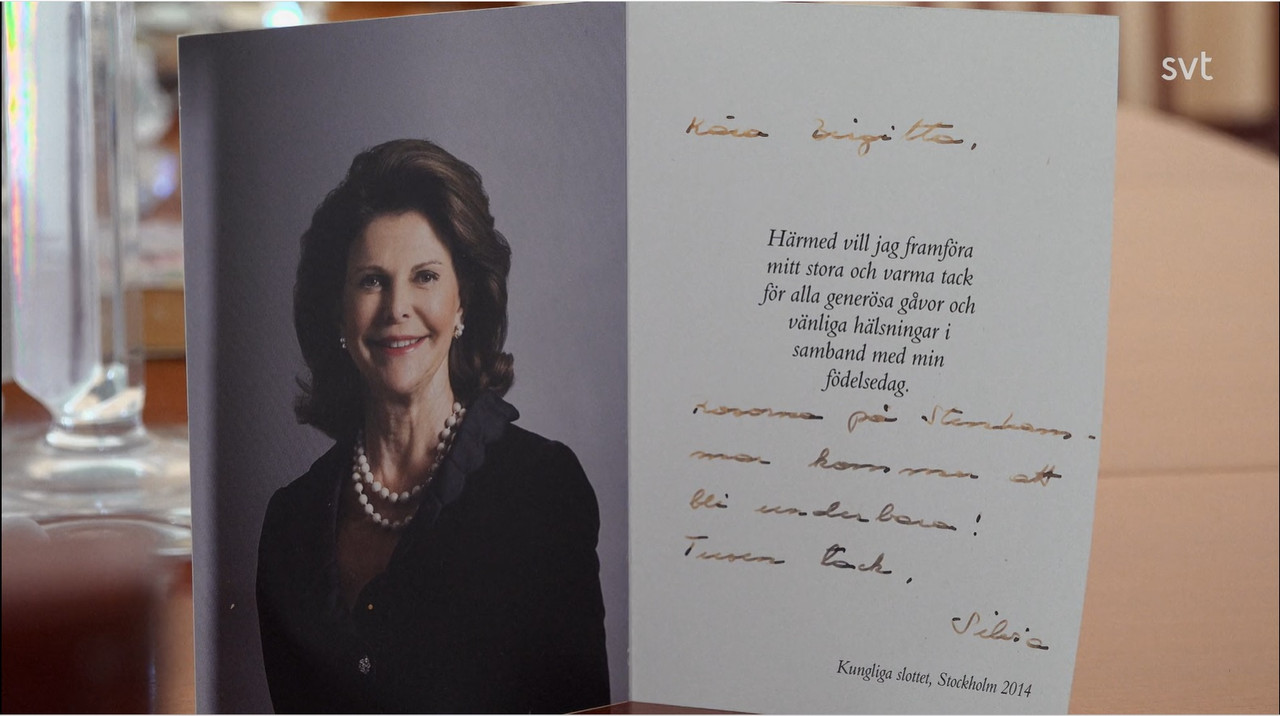 svt
Kära Birgitta,
Härmed vill jag framföra
mitt stora och varma tack
för alla generösa gåvor och
vänliga hälsningar i
samband med min
födelsedag.
på Stenham-
mar kommer att
bli underbara!
Tusen tack,
Silvia
Kungliga slottet, Stockholm 2014